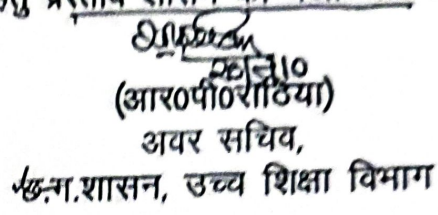 (आर0पी0राठिया)
अवर सचिव,
छ.ग.शासन, उच्च शिक्षा विभाग